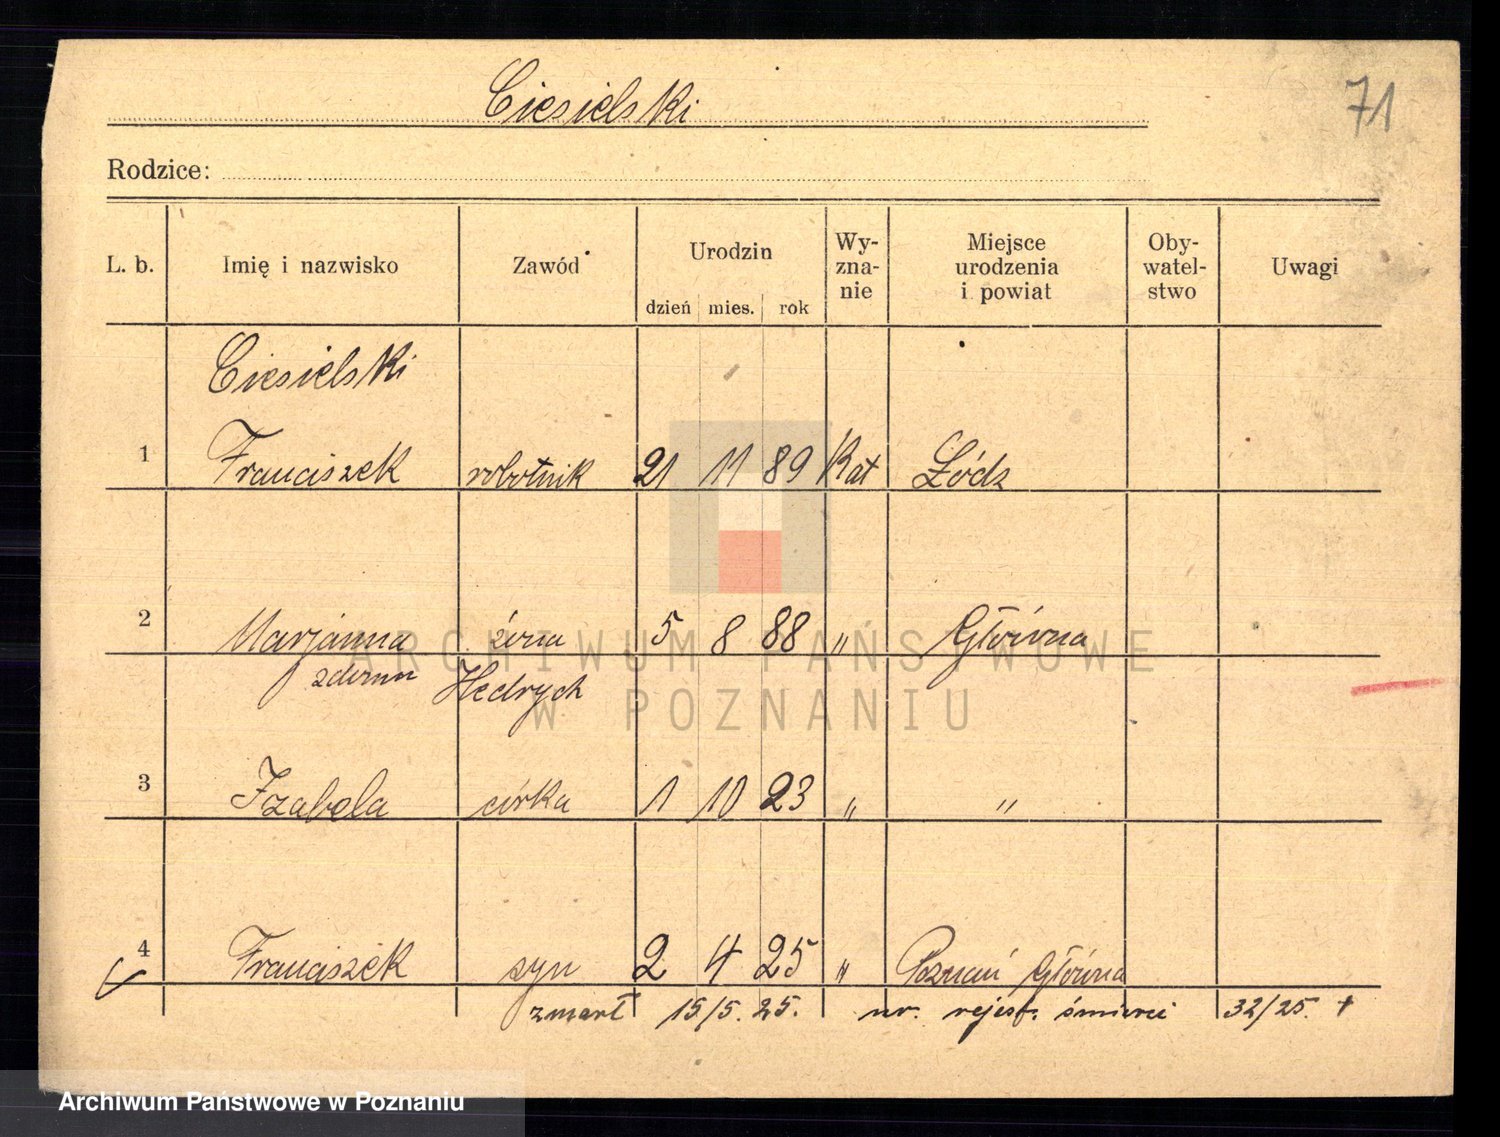 Ciesielski
71
Rodzice:
L. b. Imię i nazwisko Zawód Urodzin dzień mies. rok Wy-zna-nie Miejsce urodzenia i powiat Oby-watel-stwo Uwagi
Ciesielski
1 Franciszek robotnik 21 11 89 Kat Łódz
2 Marjanna żona 5 8 88 „ Główna
Hedrych
3 Izabela córka 1 10 23 „ „
4 Franciszek syn 2 4 25 „ Poznań Główna
zmarł 15/5. 25. nr. rejest. śmierci 32/25. +
ARCHIWUM PAŃSTWOWE
W POZNANIU
Archiwum Państwowe w Poznaniu